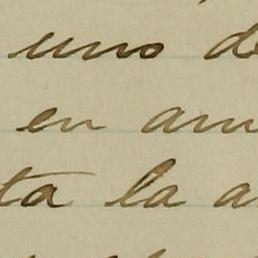 uno d
en am
ta la a